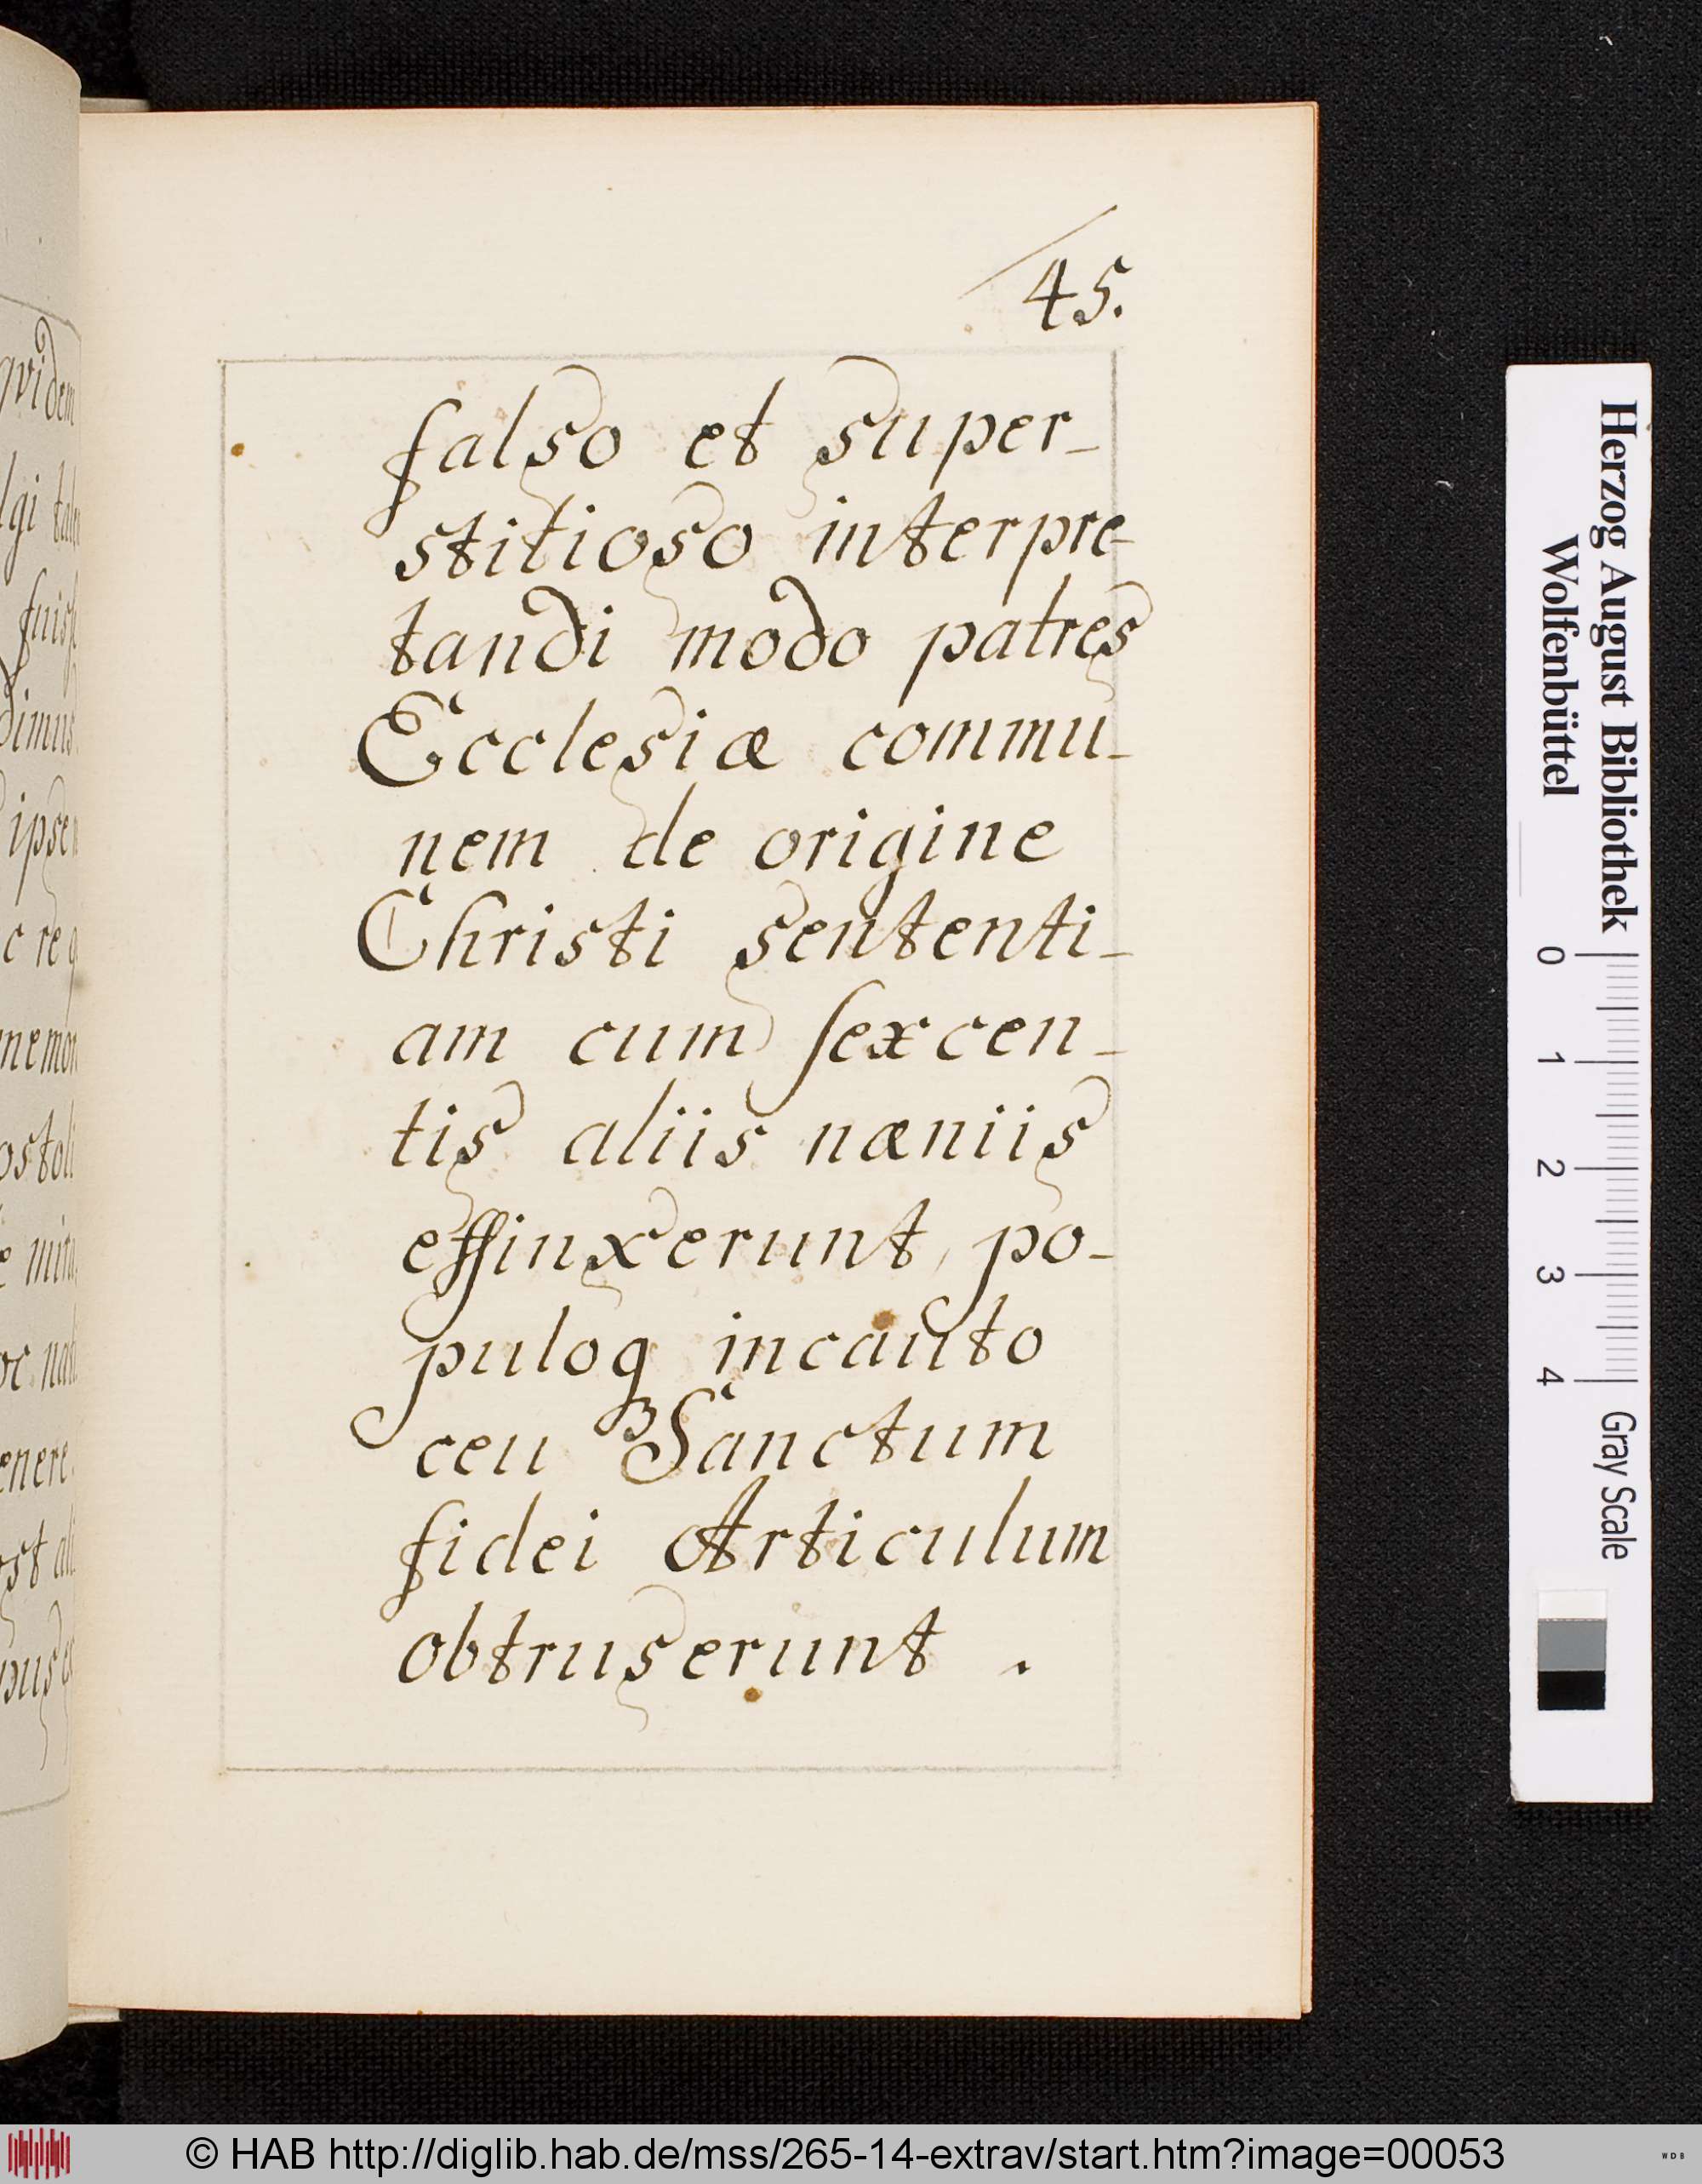 45.
falso et super-
stitioso interpre-
tandi modo patres
Ecclesiæ commu-
nem de origine
Christi sententi-
am cum sexcen-
tis aliis næniis
effinxerunt, po-
puloqꝫ incauto
ceu Sanctum
fidei Articulum
obtruserunt.
qvidem
lgi
dimus
ipse
c re
nemon
ostoli
enere
Herzog August Bibliothek
Wolfenbüttel
0 1 2 3 4 Gray Scale
© HAB http://diglib.hab.de/mss/265-14-extrav/start.htm?image=00053
WDB